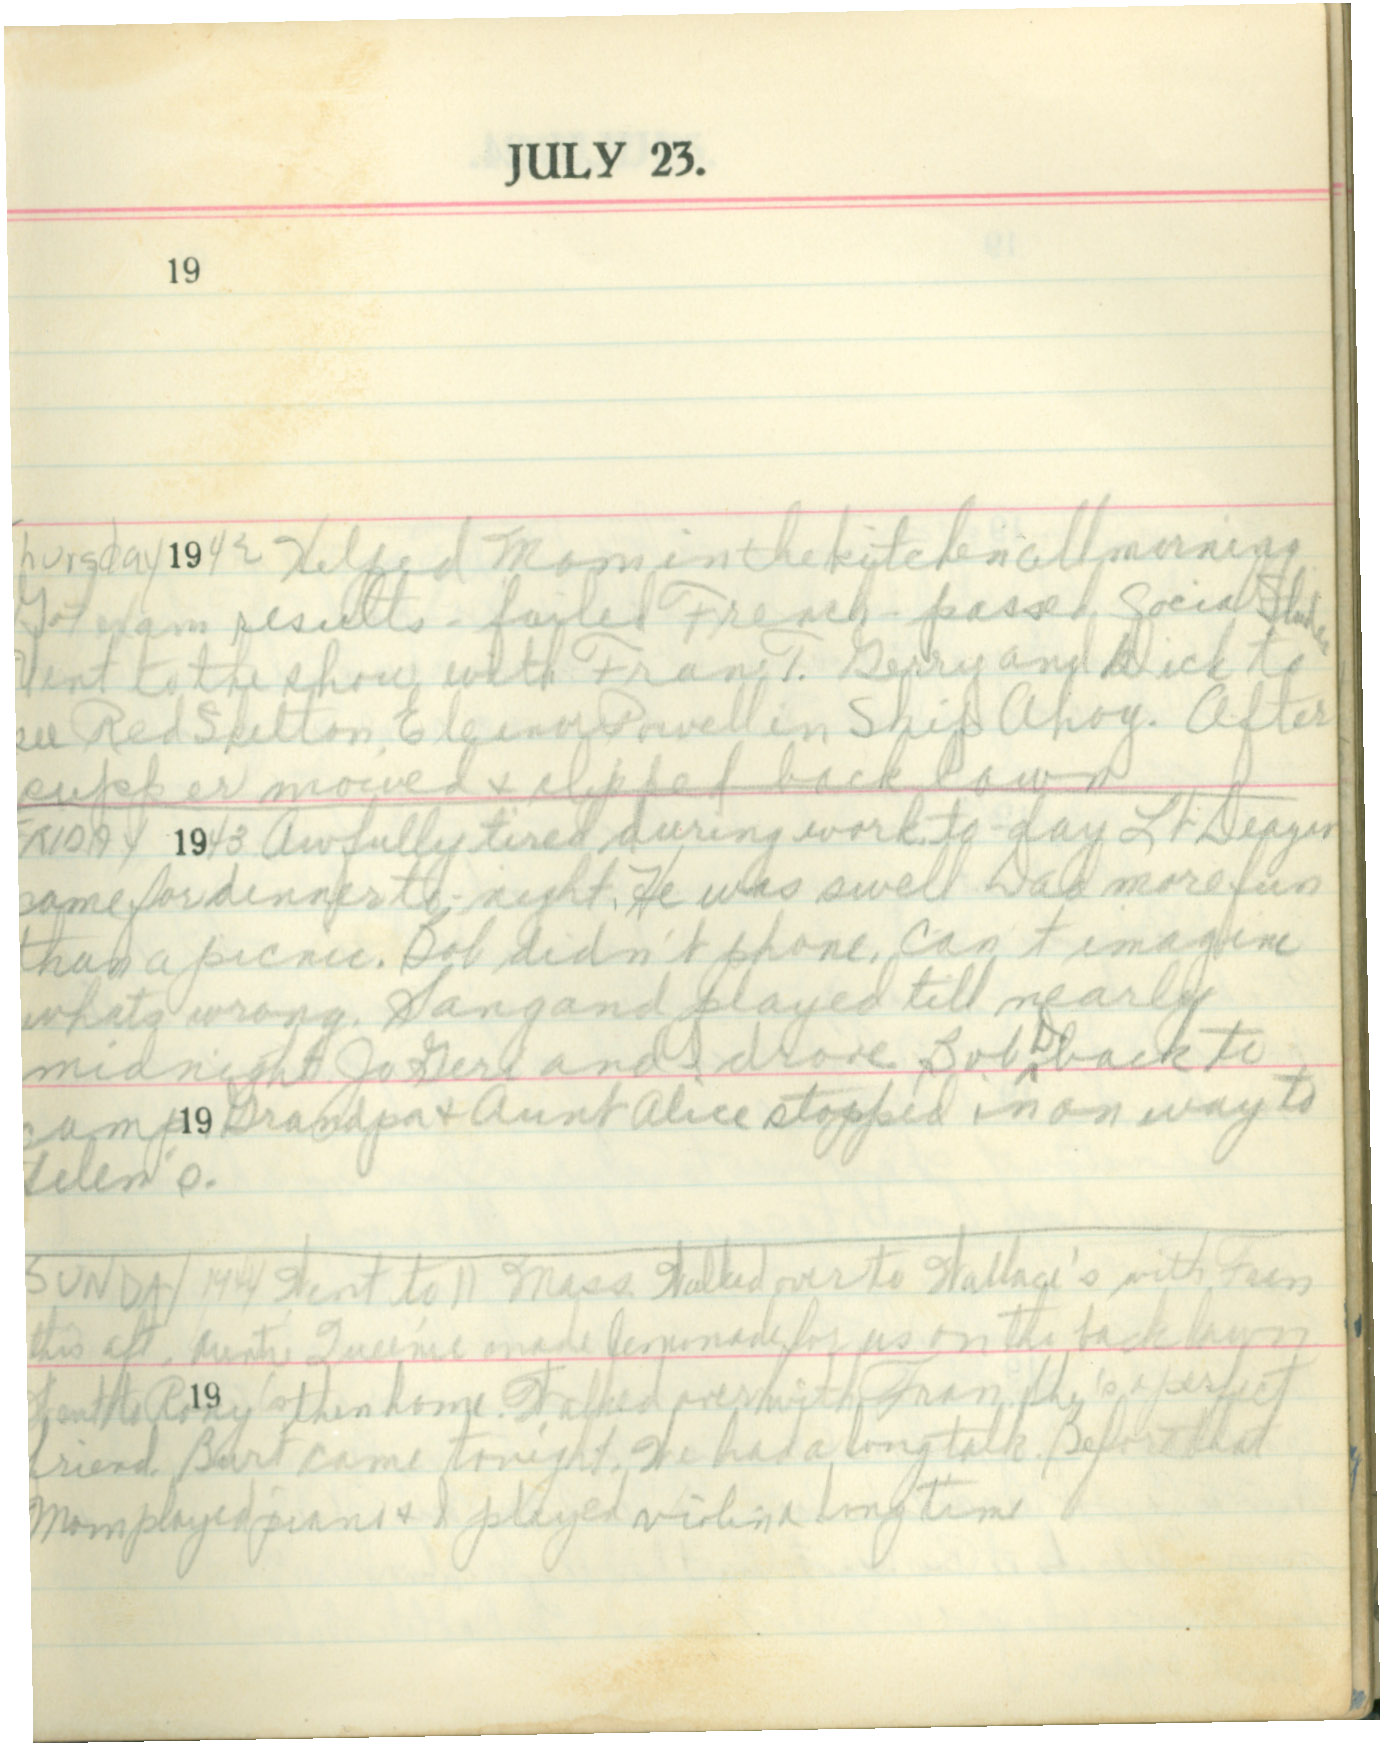 JULY 23.
19
Thursday 1942 Helped Mom in the kitchen all morning
Got exam results - failed French - passed Social Studies
Went to the show with Fran T. Gerry and Dick to
see Red Skelton, Eleanor Powell in Ship Ahoy. After
supper mowed & clipped back lawn
FRIDAY 1943 Awfully tired during work to-day Lt Deagan
came for dinner to-night. He was swell Was more fun
than a picnic. Bob didn't phone. Can't imagine
whats wrong. Sang and played till nearly
midnight Jo Geri and I drove Bob D. back to
camp 19 Grandpa & Aunt Alice stopped in on way to
Helen's.
SUNDAY 1944 Went to 11 Mass. Walked over to Wallace's with Fran
this aft. Auntie Queenie made lemonade for us on the back lawn
Went to Roxy's then home. Walked over with Fran. She's a perfect
19
friend. Burt came tonight. We had a long talk. Before that
Mom played piano & I played violin a long time